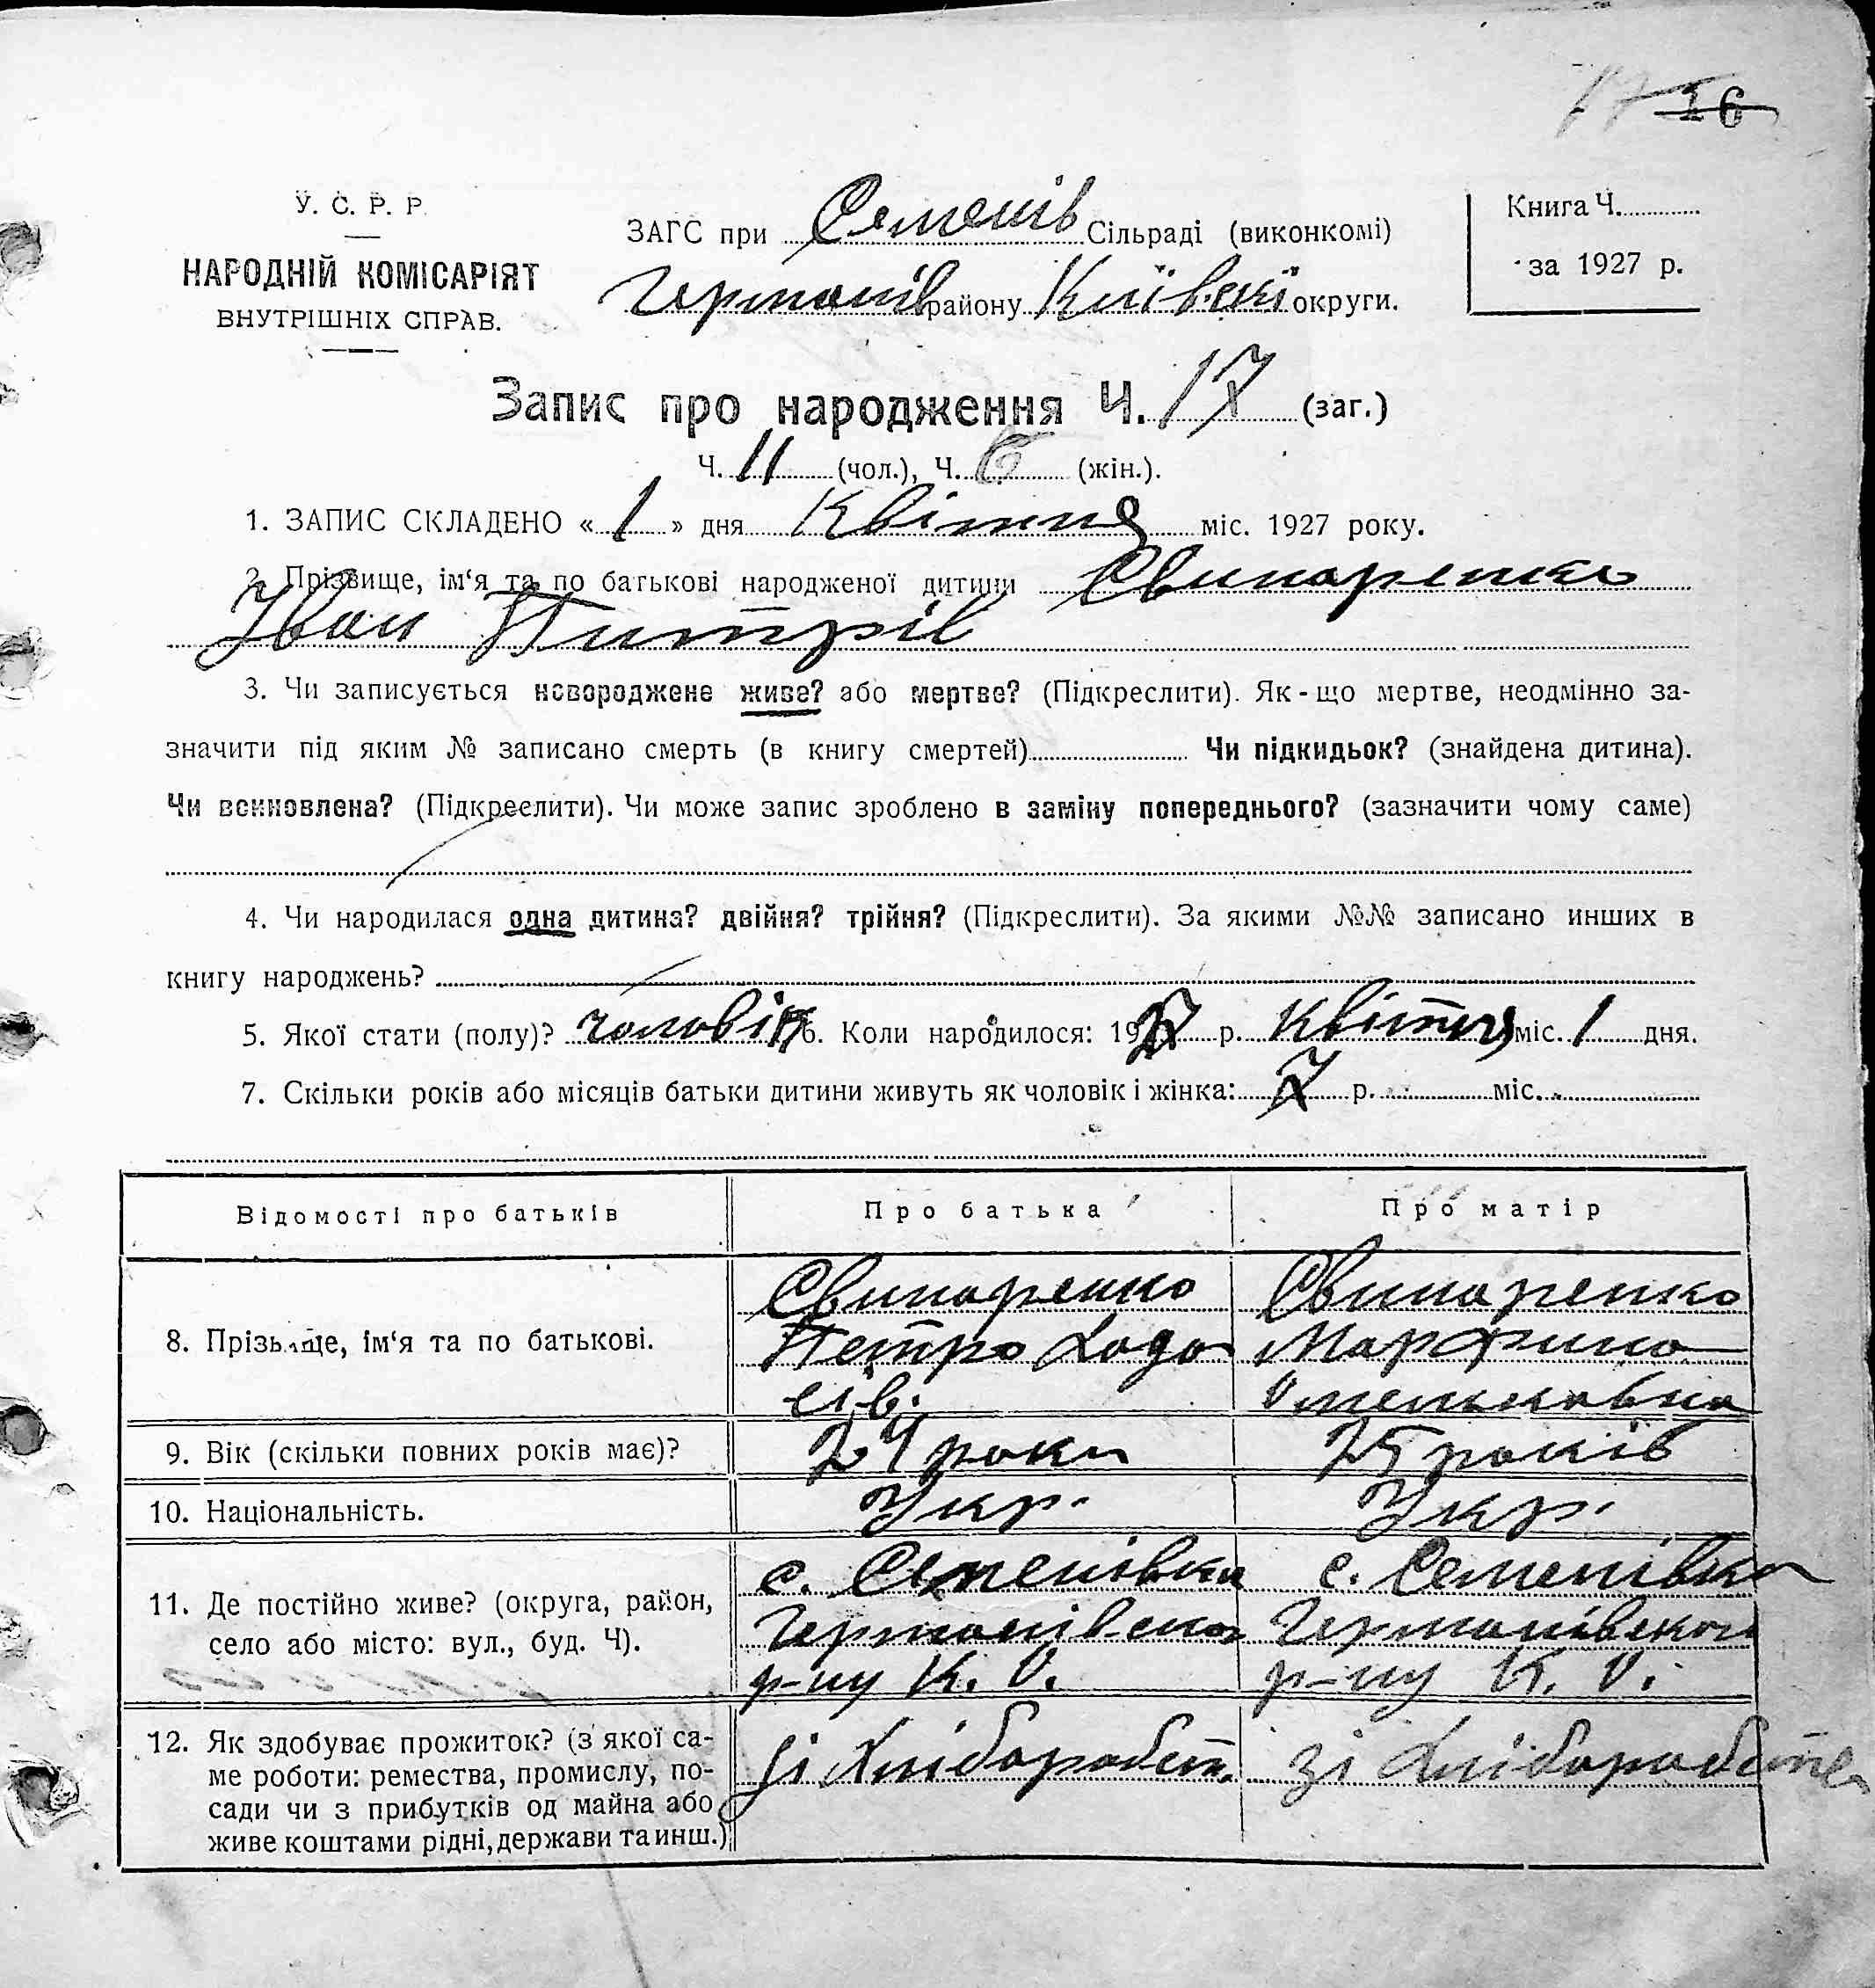 17 16
У. С. Р. Р.
НАРОДНІЙ КОМІСАРІЯТ
ВНУТРІШНІХ СПРАВ.
ЗАГС при Семенів Сільраді (виконкомі)
Германів району Київскі округи.
Книга Ч.
за 1927 р.
Запис про народження Ч. 17 (заг.)
Ч. 11 (чол.), Ч. 6 (жін.).
1. ЗАПИС СКЛАДЕНО « 1 » дня Квітня міс. 1927 року.
2. Прізвище, ім‘я та по батькові народженої дитини Свинаренко
Іван Питрів
3. Чи записується новороджене живе? або мертве? (Підкреслити). Як-що мертве, неодмінно за-
значити під яким № записано смерть (в книгу смертей) Чи підкидьок? (знайдена дитина).
Чи всиновлена? (Підкреслити). Чи може запис зроблено в заміну попереднього? (зазначити чому саме)
4. Чи народилася одна дитина? двійня? трійня? (Підкреслити). За якими №№ записано инших в
книгу народжень?
5. Якої стати (полу)? чоловік 6. Коли народилося: 1927 р. Квітня міс. 1 дня.
7. Скільки років або місяців батьки дитини живуть як чоловік і жінка: 7 р. міс.
Відомості про батьків Про батька Про матір
8. Прізвище, ім‘я та по батькові.
Свинаренко
Петро Ходо
сів.
Свинаренко
Марфина
Омельковна
9. Вік (скільки повних років має)? 24 роки 25 років
10. Національність. Укр. Укр.
11. Де постійно живе? (округа, район,
село або місто: вул., буд. Ч).
с. Семенівка
Германівского
р-ну К. О.
с. Семенівка
Германівского
р-ну К. О.
12. Як здобуває прожиток? (з якої са-
ме роботи: ремества, промислу, по-
сади чи з прибутків од майна або
живе коштами рідні, держави та инш.)
зі Хліборобст.
зі Хліборобства